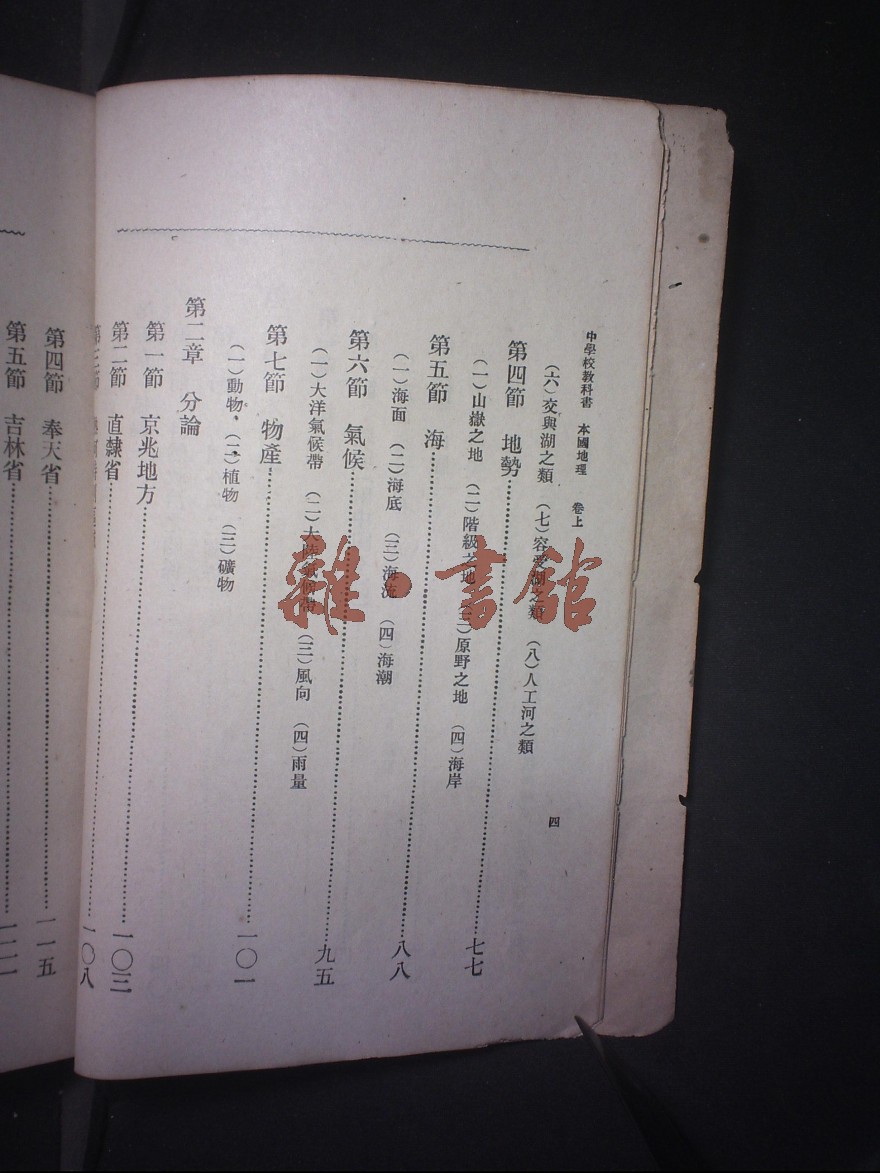 中學校教科書 本國地理 卷上 四
(六)交與湖之類 (七)容受湖之類 (八)人工河之類
第四節 地勢……七七
(一)山嶽之地 (二)階級之地 (三)原野之地 (四)海岸
第五節 海……八八
(一)海面 (二)海底 (三)海流 (四)海潮
第六節 氣候……九五
(一)大洋氣候帶 (二)大陸氣候帶 (三)風向 (四)雨量
第七節 物產……一〇一
(一)動物 (二)植物 (三)礦物
第二章 分論
第一節 京兆地方……一〇三
第二節 直隸省……一〇八
第三節
第四節 奉天省……一一五
第五節 吉林省
雜·書館